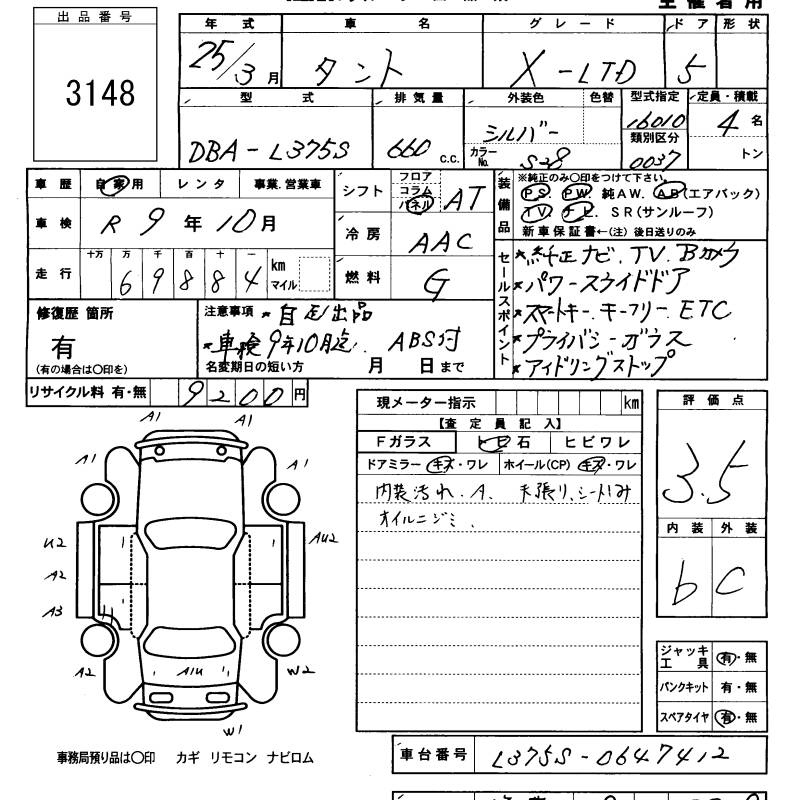 出品番号
3148
年式 車名 グレード ドア 形状
25/3月 タント X-LTD 5
型式 排気量 外装色 色替 型式指定 定員・積載
DBA-L375S 660 c.c. シルバー 16010 4名
カラーNo. S28 類別区分 0037 トン
車歴 自家用 レンタ 事業.営業車
車検 R 9年10月
走行 十万 万 千 百 十 一
69884 km マイル
シフト フロア コラム パネル AT
冷房 AAC
燃料 G
装備品 ※純正のみ〇印をつけて下さい。
PS. PW. 純AW. AB(エアバック)
TV. ナビ. SR(サンルーフ)
新車保証書←(注) 後日送りのみ
セールスポイント
*純正ナビ.TV.Bカメラ
*パワースライドドア
*スマートキー.キーフリー.ETC
*プライバシーガラス
*アイドリングストップ
修復歴 箇所
有
(有の場合は〇印を)
注意事項 *自社出品
*車検9年10月迄. ABS付
名変期日の短い方 月 日まで
リサイクル料 有・無 9200円
現メーター指示 km
【査定員記入】
Fガラス トビ石 ヒビワレ
ドアミラー キズ・ワレ ホイール(CP) キズ・ワレ
内装汚れ.A. 天張り.シートしみ
オイルニジミ.
評価点
3.5
内装 外装
b C
A1 A1
A1 A1
U2 AU2
A2
A3
A2 A1U W2
W1
ジャッキ工具 有・無
パンクキット 有・無
スペアタイヤ 有・無
事務局預り品は〇印 カギ リモコン ナビロム
車台番号 L375S-0647412